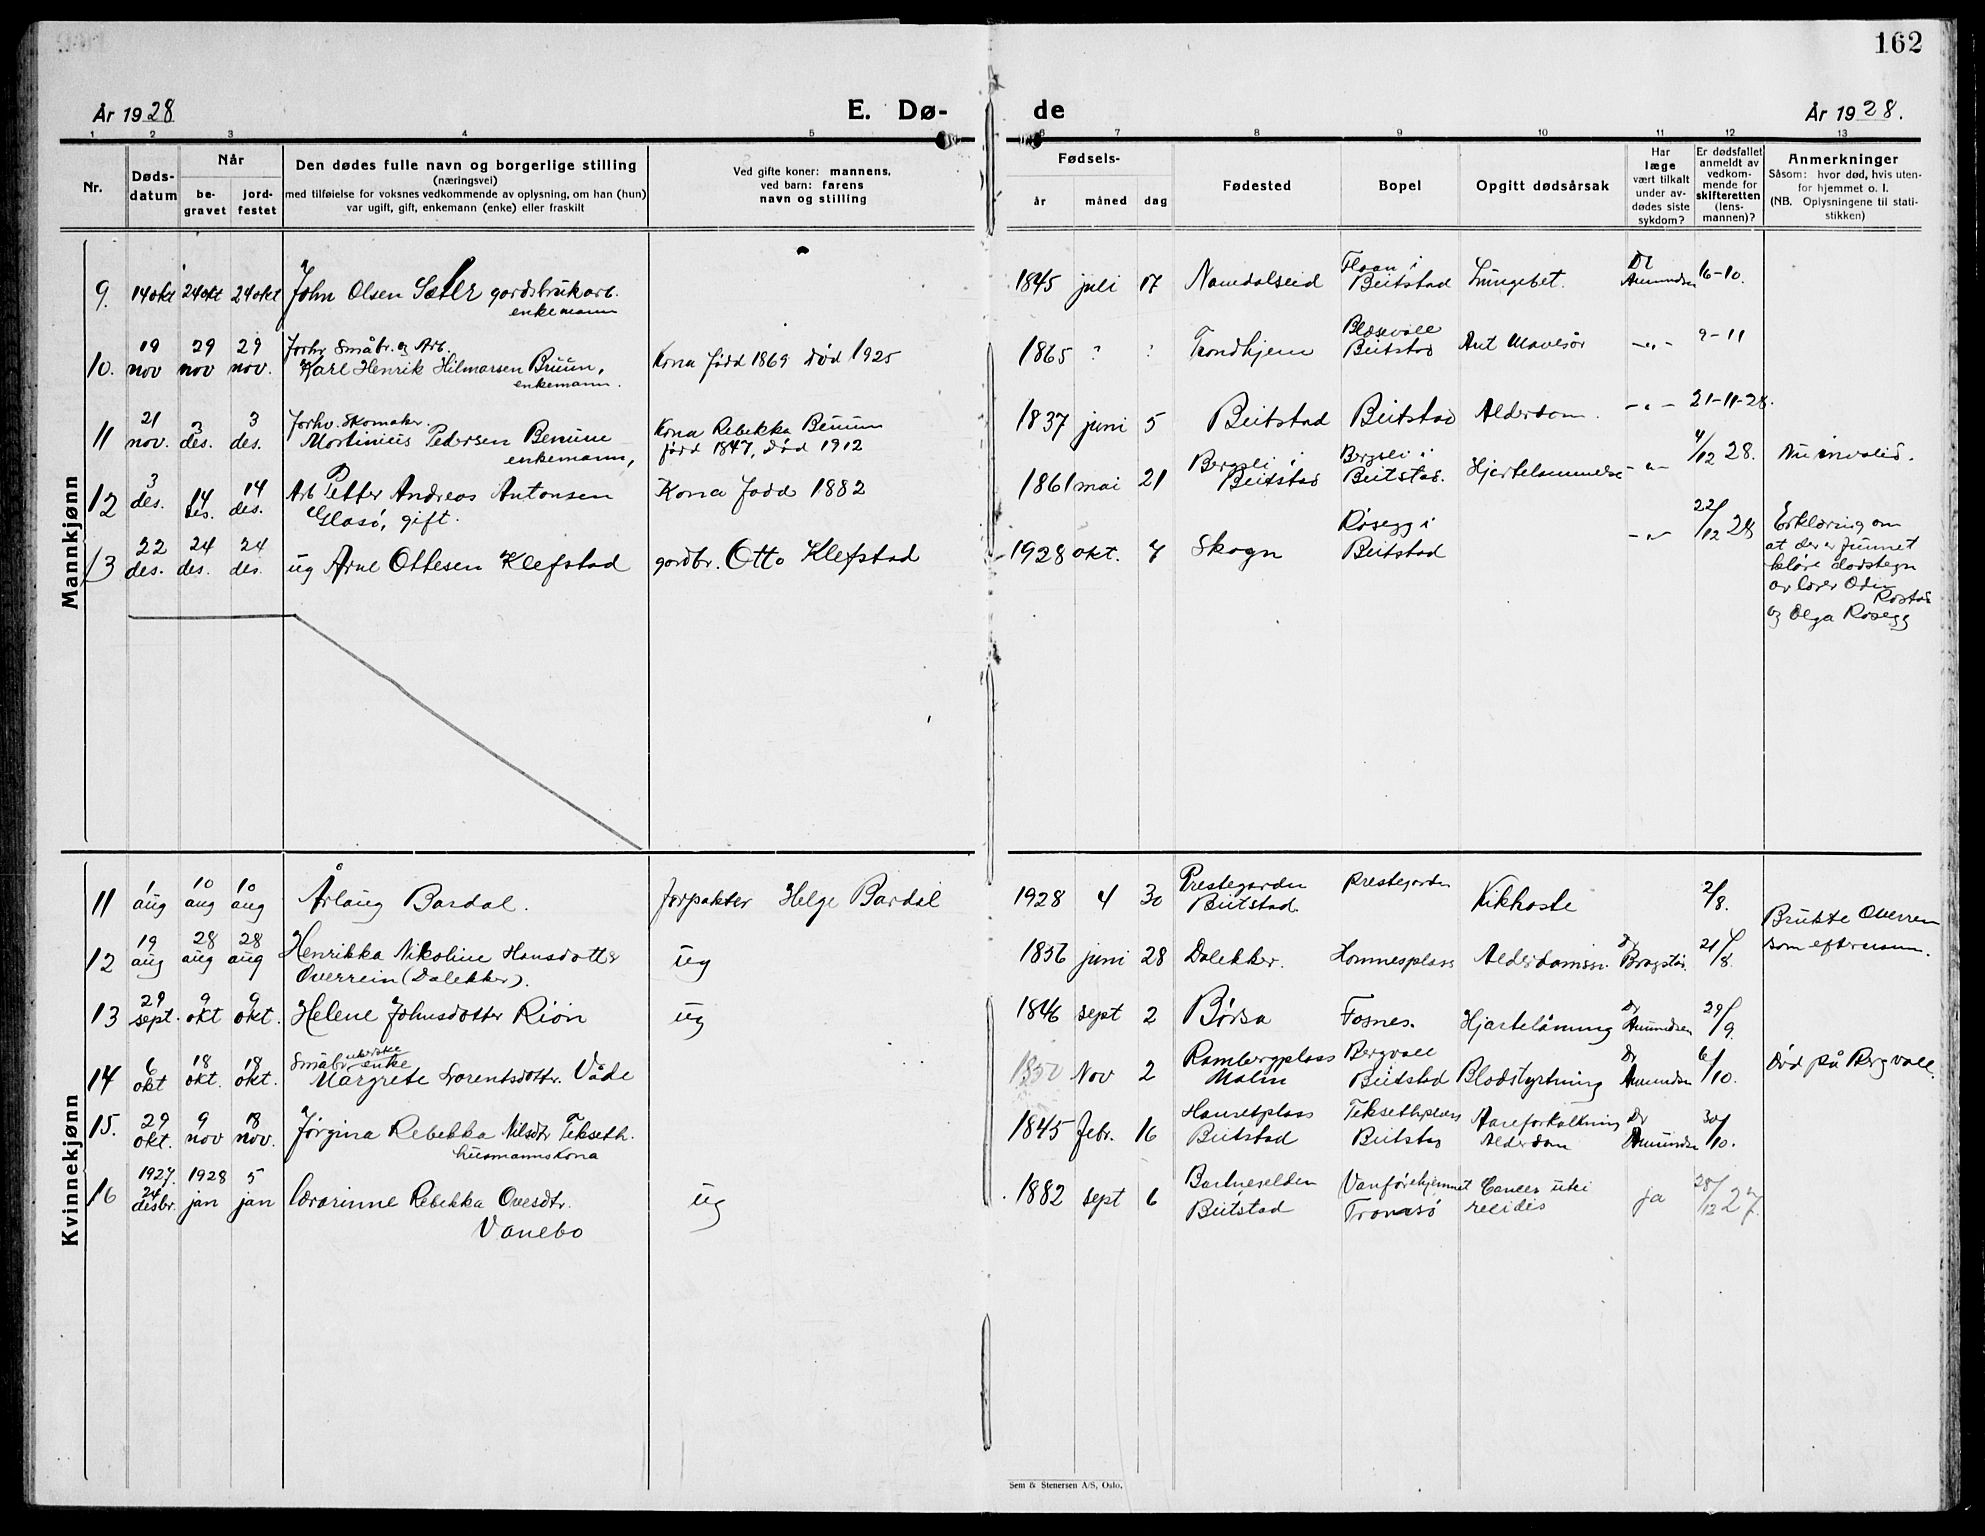 162
År 1928
E. Dø-
de
År 1928.
1 2 3 4 5 6 7 8 9 10 11 12 13
Nr.
Døds-
datum
Når
be-
gravet
jord-
festet
Den dødes fulle navn og borgerlige stilling
(næringsvei)
med tilføielse for voksnes vedkommende av oplysning, om han (hun)
var ugift, gift, enkemann (enke) eller fraskilt
Ved gifte koner: mannens,
ved barn: farens
navn og stilling
Fødsels-
år
måned
dag
Fødested
Bopel
Opgitt dødsårsak
Har
læge
vært tilkalt
under av-
dødes siste
sykdom?
Er dødsfallet
anmeldt av
vedkom-
mende for
skifteretten
(lens-
mannen)?
Anmerkninger
Såsom: hvor død, hvis uten-
for hjemmet o. l.
(NB. Oplysningene til stati-
stikken)
Mannkjønn
9. 14 okt 24 okt 24 okt John Olsen Sæter gardsbrukarb.
enkemann
1845 juli 17 Namdalseid Beitstad Lungebet. Dr Amundsen 16-10.
10. 19 nov 29 nov 29 nov. Forhv. Småbr. og Arb.
Karl Henrik Hilmarsen Bruun,
enkemann.
Kona født 1869 død 1925
1865 ? ? Trondhjem Beitstad Ant Mavesår -"- 9-11
11 21 nov. 3 des. 3 des. Forhv. Skomaker
Mortinius Pedersen Benum
enkemann,
Kona Rebekka Benum
født 1847, død 1912
1837 juni 5 Beitstad Beitstad Alderdom. -"- 21-11-28.
12 3 des. 14 des. 14 des. Arb Petter Andreas Antonsen
Glasø, gift.
Kona født 1882
1861 mai 21 Bergsli i Beitstad Bergsli i Beitstad. Hjertelammelse -"- 4/12 28. invalid.
13 22 des. 24 des. 24 des. ug Arne Ottesen Klefstad
gardbr. Otto Klefstad
1928 okt. 7 Skogn Røsegg i Beitstad -"- 22/12 28
Erklæring om
at der er funnet
klåre dødstegn
av lærer Odin
Rostad
og Olga Røsegg
Kvinnekjønn
11 1 aug 10 aug 10 aug Årlaug Bardal.
forpakter Helge Bardal
1928 4 30 Prestegarden Beitstad. Prestegarden Kikhoste 2/8.
12 19 aug 28 aug 28 aug Henrikka Nikoline Hansdotter
Overrein (Dalekker).
ug
1856 juni 28 Dalekker. Hommesplass Alderdomssv. Dr Bragstad. 21/8.
Brukte Overrein
som efternavn.
13 29 sept. 9 okt 9 okt. Helene Johnsdotter Rion
ug
1846 sept 2 Børsa Fosnes. Hjartelåming Dr Amundsen 29/9.
14 6 okt 18 okt. 18 okt. Småbrukerske enke
Margrete Lorentsdottr. Våde
1850 Nov 2 Rambergplass Malm Bergvall Beitstad Blodstyrtning Dr Amundsen 6/10.
Død på Bergvall.
15. 29 okt. 9 nov 18 nov. Jørgina Rebekka Nilsdtr Tekseth.
husmannskona
1845 febr. 16 Beitstad Teksethplass Beitstad Aareforkalkning
Alderdom Dr Amundsen 30/10.
16 1927. 24 desbr. 1928 jan 5 jan Rebekka Ovesdtr.
Vanebo
ug
1882 sept 6 Beitstad Vanførehjemmet Tromsø Cancer uteri
recidis ja 28/12 27.
Sem & Stenersen A/S, Oslo.